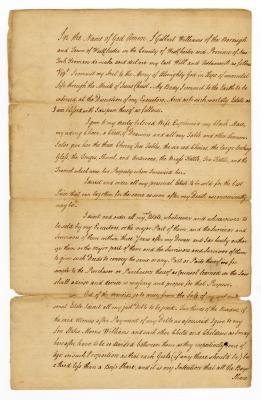 In the Name of God Amen I Gilbert Williams of the Borough
and Town of Westchester in the County of Westchester and Province of New
York Yeoman do make and ordain my last Will and Testament as follows
I commit my Soul to the Mercy of Almighty God in Hope of immortal
Life through the Merits of Jesus Christ. My Body I commit to the Earth to be
interred at the Direction of my Executors. And as to such worldly Estate as
I am I dispose thereof as follows.
I give to my dearly beloved Wife my black Mare,
my riding Chair, a Chest of Drawers and all my Table and other Linnen
also give her the two Cherry Tea Tables, the six Chairs, the large looking
Glass, the Tongs, Shovel, and Andirons, the Brass Kettle, Tea Kettle, and the
which were her Property when I married her.
I will and order all my personal Estate to be sold for the best
Price that can together for the same as soon after my Death as conveniently
may be.
I will and order all my Estate, whatsoever and wheresoever to
be sold by my Executors or the major Part of them, and the Survivors and
Survivors of them within three Years after my Decease and I do hereby authorize
them or the major part of them and the Survivors and Survivors of them
to give such Deeds to convey the same in any Part or Parts thereof in fee
simple to the Purchaser or Purchasers thereof as Counsel learned in the Law
shall advise and devise as requisite and proper for that Purpose.
Out of the monies to arise from the Sale of my
Estate I will all my just Debts to be paid. Two thirds of the Residue of
the said Monies after Payment of my Debts as aforesaid I give to my
Son Morris Williams and such other Child and Children as I may
hereafter have to be divided between them as they respectively come of
Age in such Proportions as that each Girl (if any there should be) be
a third less than a Boy's Share, and it is my Intention that all the Boys
Share